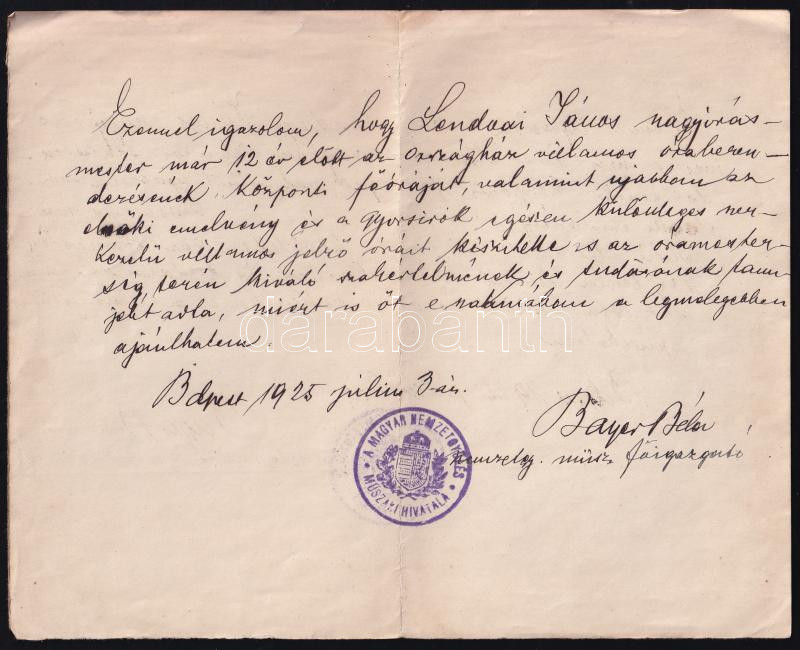 Ezennel igazolom, hogy Lendvai János nagyórás-
mester már 12 év előtt az országház villamos óraberen-
dezésének központi főóráját, valamint ujabban az
elnöki emelvény és a gyorsirók egészen különleges szer-
kezetü villamos jelző óráit készitette is az oramester-
ség terén kiváló szakértelmének és tudásának tanu-
jelét adta, miért is őt e szakmában a legmelegebben
ajánlhatom.
Bdpest 1925 július 3-án.
Bayer Béla
nemzetgy. műsz. főigazgató
A MAGYAR NEMZETGYŰLÉS
MŰSZAKI HIVATALA
darabanth